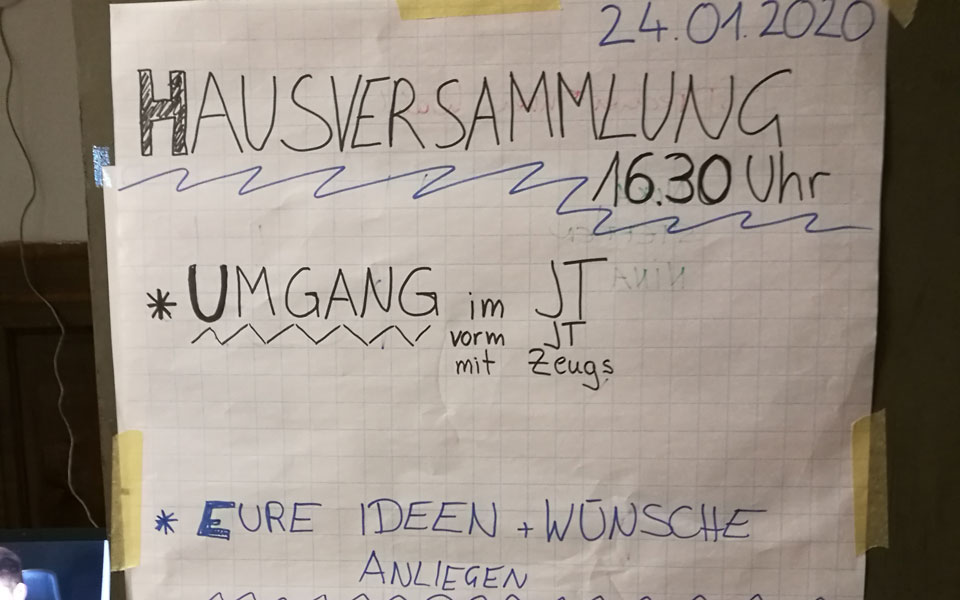 24.01.2020
HAUSVERSAMMLUNG
16.30 Uhr
* UMGANG im JT
vorm JT
mit Zeugs
* EURE IDEEN + WÜNSCHE
ANLIEGEN